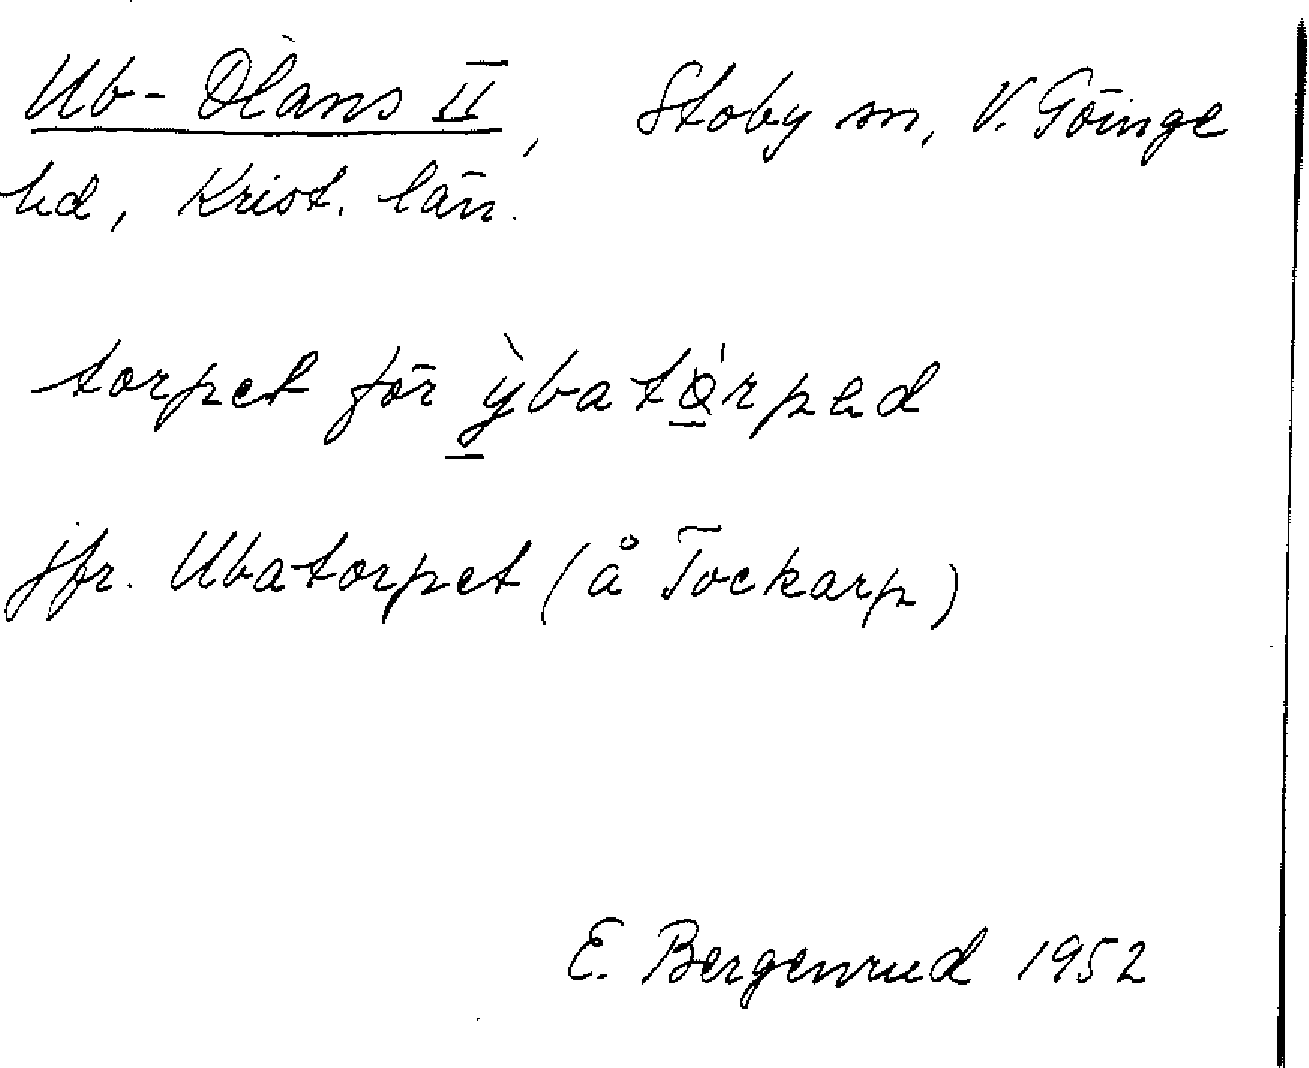 Ub-Olans II, Stoby sn, V. Göinge
hd, Krist. län.
torpet för ỳbatǫ́rpəd
jfr. Ubatorpet (å Tockarp)
E. Bergenrud 1952